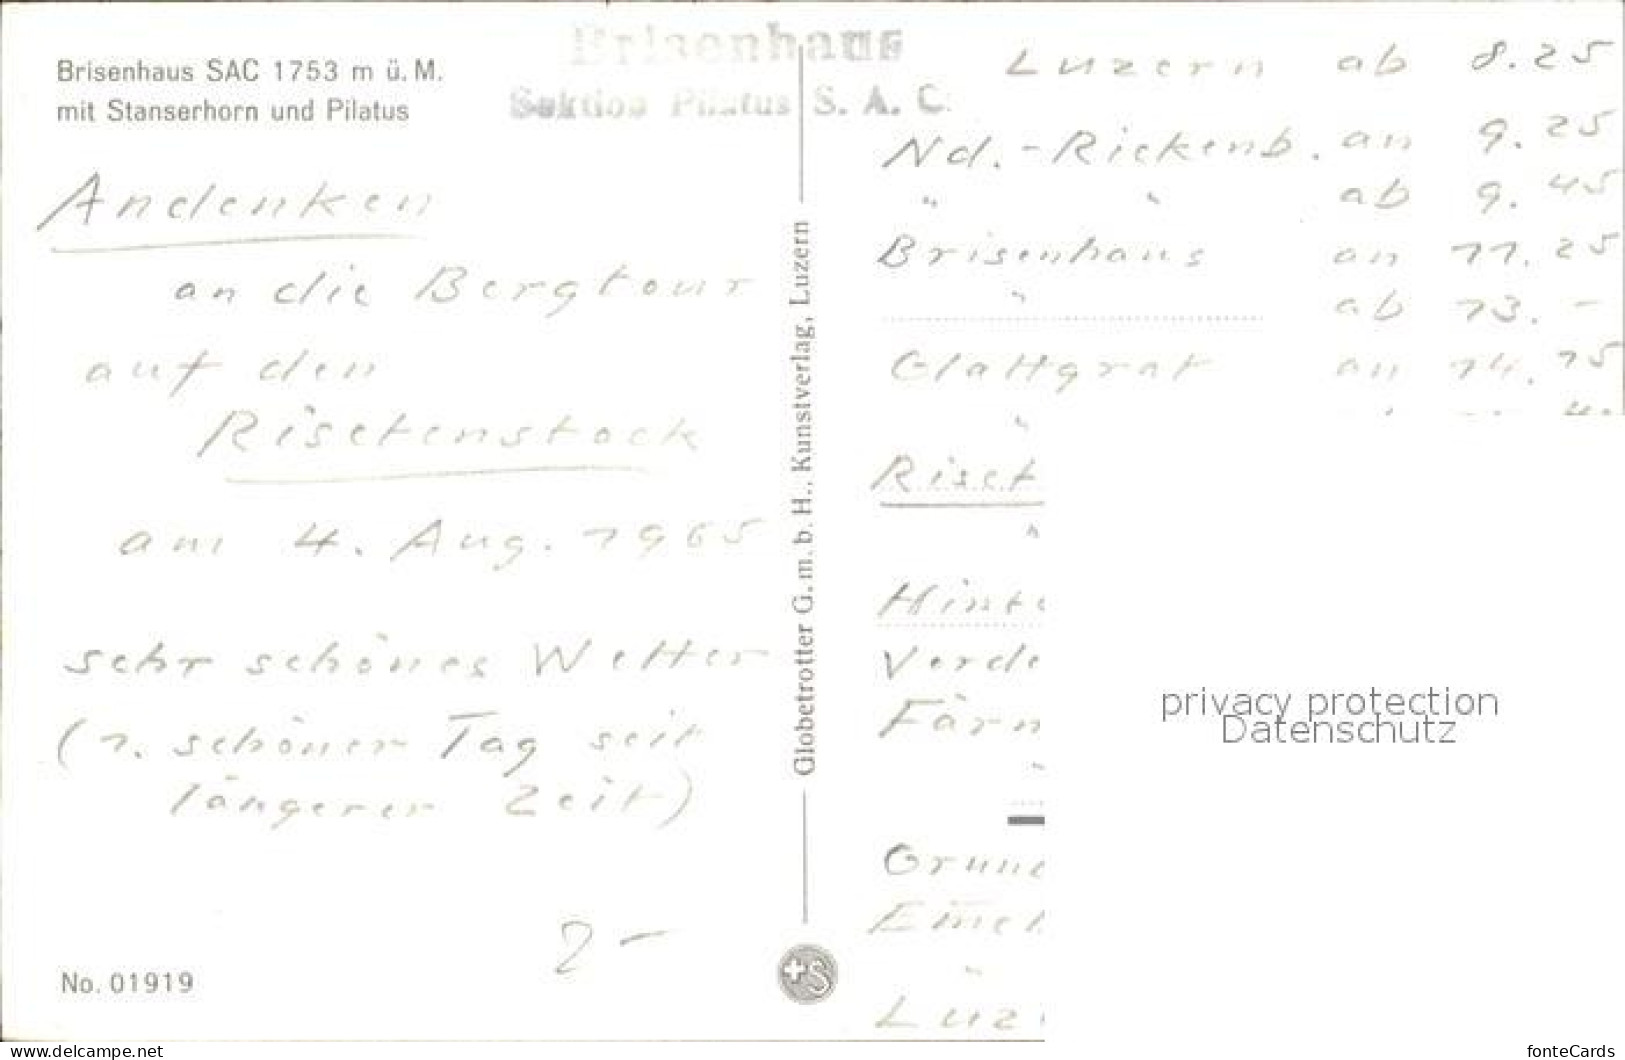 Brisenhaus SAC 1753 m ü. M.
mit Stanserhorn und Pilatus
Brisenhaus
Sektion Pilatus S. A. C.
Andenken
an die Bergtour
auf den
Risetenstock
am 4. Aug. 1965
sehr schönes Wetter
(1. schöner Tag seit
längerer Zeit)
2 –
No. 01919
Globetrotter G. m. b. H., Kunstverlag, Luzern
+S
Luzern ab 8.25
Nd.-Rickenb. an 9.25
" " ab 9.45
Brisenhaus an 11.25
" ab 13.–
Glattgrat an 14.15
"
Riset
"
Hinte
Verde
Färn
"
Grund
Emet
"
Luz
privacy protection
Datenschutz
www.delcampe.net
fonteCards